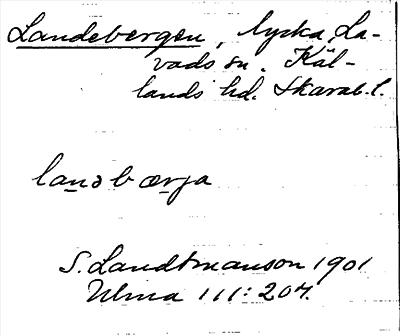 Landebergen, lycka, La-
vads sn. Kål-
lands hd. Skarab. l.
landbærja
S. Landtmanson 1901
Ulma 111: 204.